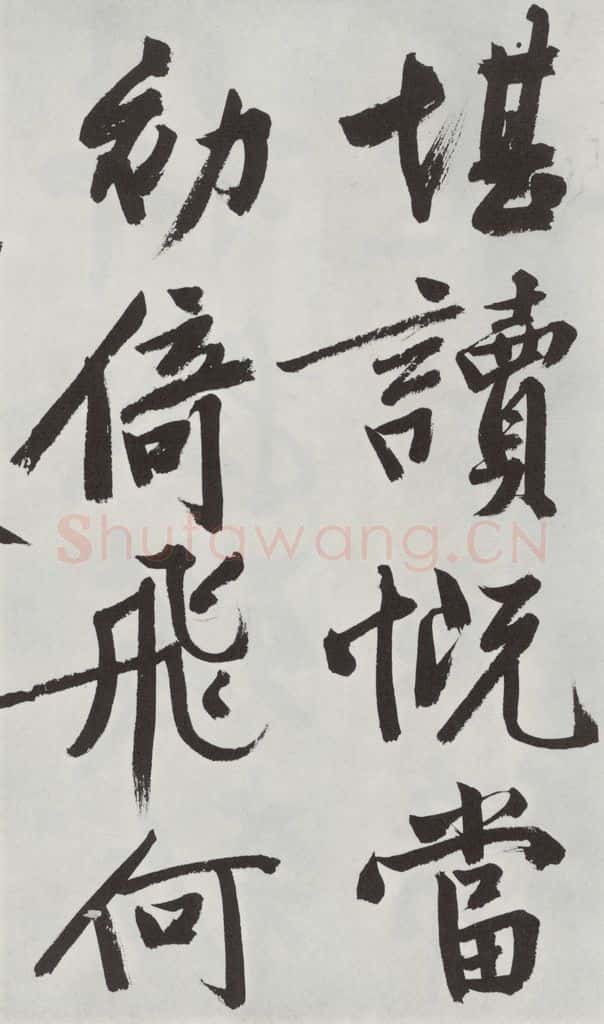 堪讀慨當
初倚飛何
Shufawang.CN